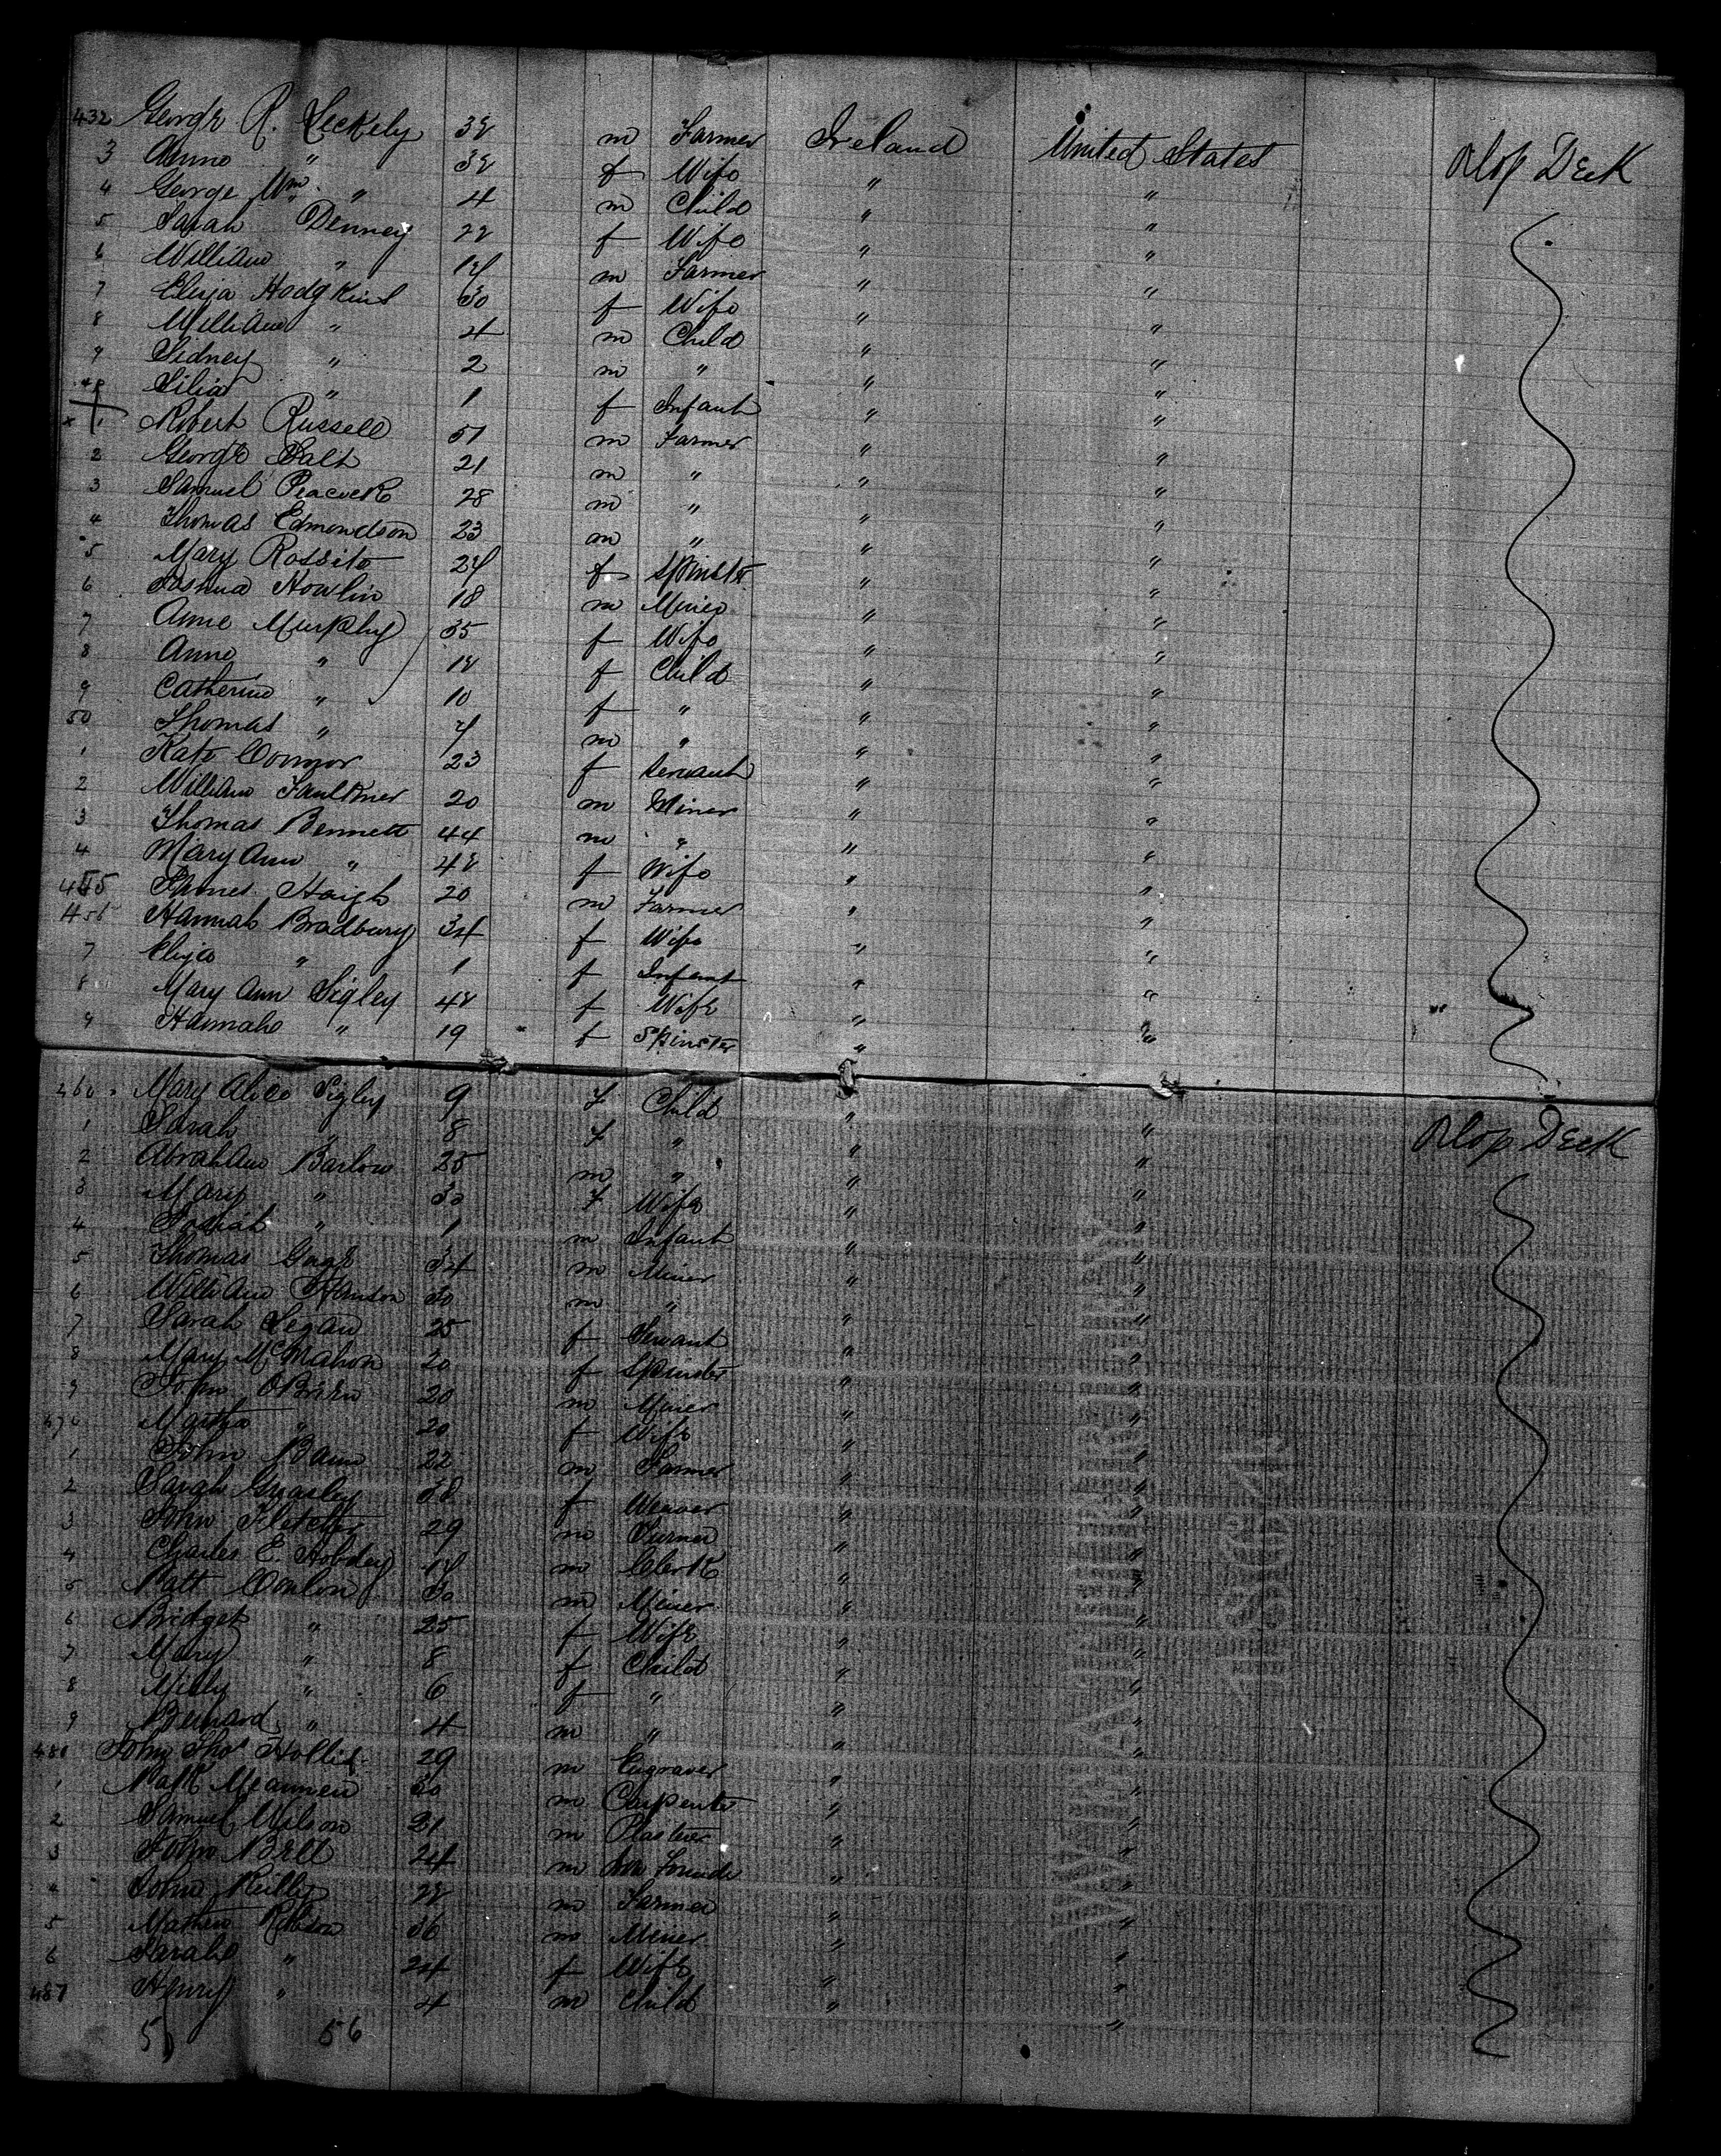 432 George R. Leckely 32 m Farmer Ireland United States Orlop Deck
3 Anne " 32 f Wife " "
4 George Wm " 4 m Child " "
5 Sarah Denney 22 f Wife " "
6 William " m Farmer " "
7 Eliza Hodgkins 30 f Wife " "
8 William " 4 m Child " "
9 Sidney " 2 m " " "
Lilia " 1 f Infant " "
1 Robert Russell 51 m Farmer " "
2 George Salt 21 m " " "
3 Samuel Peacock 28 m " " "
4 Thomas Edmondson 23 m " " "
5 Mary Rossito 24 f Spinster " "
6 Joshua Howlin 18 m Miner " "
7 Anne Murphy 35 f Wife " "
8 Anne " 12 f Child " "
9 Catherine " 10 f " " "
50 Thomas " m " " "
1 Kate Connor 23 f Servant " "
2 William Faulkner 20 m Miner " "
3 Thomas Bennett 44 m " " "
4 Mary Ann " 42 f Wife " "
455 Haigh 20 m Farmer " "
456 Hannah Bradbury 34 f Wife " "
7 Eliza " 1 f Infant " "
8 Mary Ann Sigley 42 f Wife " "
9 Hannah " 19 f Spinster " "
460 Mary Alice Sigley 9 f Child " " Orlop Deck
1 Sarah " 8 f " " "
2 Abraham Barlow 25 m " " "
3 Mary " 30 f Wife " "
4 Josiah " 1 m Infant " "
5 Thomas 34 m Miner " "
6 William Hanson 30 m " " "
7 Sarah Segan 25 f Servant " "
8 Mary McMahon 20 f Spinster " "
9 John OBrien 20 m Miner " "
470 Martha " 20 f Wife " "
1 John 22 m Farmer " "
2 Sarah Greasley 38 f Weaver " "
3 John Fletcher 29 m Farmer " "
4 Charles E. Hobday m Clerk " "
5 Matt Conlon 30 m Miner " "
6 Bridget " 25 f Wife " "
7 Mary " 8 f Child " "
8 Milly " 6 f " " "
9 Bernard " 4 m " " "
480 John Thos Hollis 29 m Engraver " "
1 30 m Carpenter " "
2 Samuel Wilson 21 m Plasterer " "
3 John Bell 24 m Iron Founder " "
4 John Reilly 22 m Farmer " "
5 Mathew Robson 36 m Miner " "
6 Sarah " 24 f Wife " "
487 Henry " 4 m Child " "
56